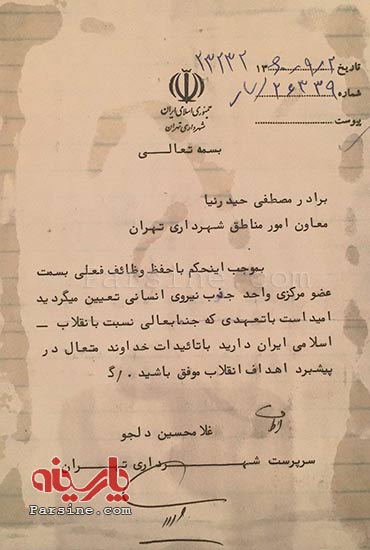 ۲۳۲۳۲
تاریخ ۱۳۶۰-۹-۲
شماره ۲۶۳۳۹/
پیوست
جمهوری اسلامی ایران
شهرداری تهران
بسمه تعالی
برادر مصطفی حیدرنیا
معاون امور مناطق شهرداری تهران
بموجب اینحکم باحفظ وظائف فعلی بسمت
عضو مرکزی واحد جذب نیروی انسانی تعیین میگردید
امیداست باتعهدی که جنابعالی نسبت باانقلاب
اسلامی ایران دارید باتائیدات خداوند متعال در
پیشبرد اهداف انقلاب موفق باشید
غلامحسین دلجو
سرپرست شهرداری تهران
پارسینه
Parsine.com